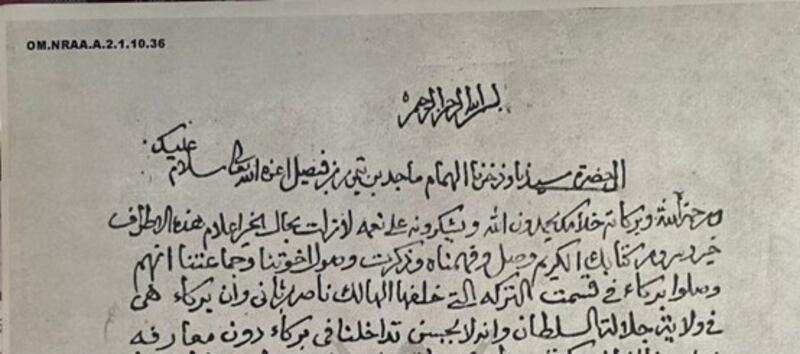 OM.NRAA.A.2.1.10.36
بسم الله الرحمن الرحيم
الى حضرة سيدنا وذخرنا الهمام ماجد بن تيمور بن فيصل اعزه الله تعالى سلام عليك
ورحمة الله وبركاته خدامك يحمدون الله ويشكرونه على نعمه لا زلت بحال الخير اعلام هذه الاطراف
خير وسرور كتابك الكريم وصل وفهمناه وذكرت وصول اخوتنا وجماعتنا انهم
وصلوا بركاء في قسمت التركه التي خلفها الهالك ناصر ثاني وأن بركاء هي
في ولاية جلالة السلطان وانه لا يحسن تداخلنا في بركاء دون معارفه